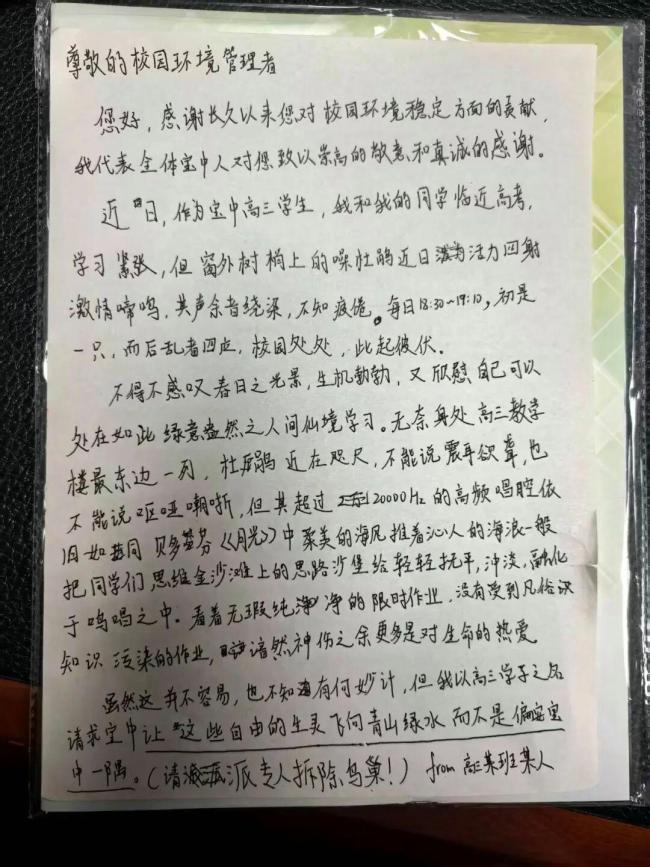 尊敬的校园环境管理者
您好，感谢长久以来您对校园环境稳定方面的贡献，
我代表全体宝中人对您致以崇高的敬意和真诚的感谢。
近日，作为宝中高三学生，我和我的同学临近高考，
学习紧张，但窗外树梢上的噪杜鹃近日活力四射
激情啼鸣，其声余音绕梁，不知疲倦。每日18:30~19:10，初是
一只，而后乱者四应，校园处处，此起彼伏。
不得不感叹春日之光景，生机勃勃，又欣慰自己可以
处在如此绿意盎然之人间仙境学习。无奈身处高三教学
楼最东边一列，杜鹃近在咫尺，不能说震耳欲聋，也
不能说呕哑嘲哳，但其超过20000Hz的高频唱腔依
旧如同贝多芬《月光》中柔美的海风推着沁人的海浪一般
把同学们思维金沙滩上的思路沙堡给轻轻抚平，冲淡，融化
于鸣唱之中。看着无瑕纯净的限时作业，没有受到凡俗
知识污染的作业，黯然神伤之余更多是对生命的热爱
虽然这并不容易，也不知有何妙计，但我以高三学子之名
请求宝中让这些自由的生灵飞向青山绿水而不是偏宝
中一隅。（请派专人拆除鸟巢！） from 高三某班某人